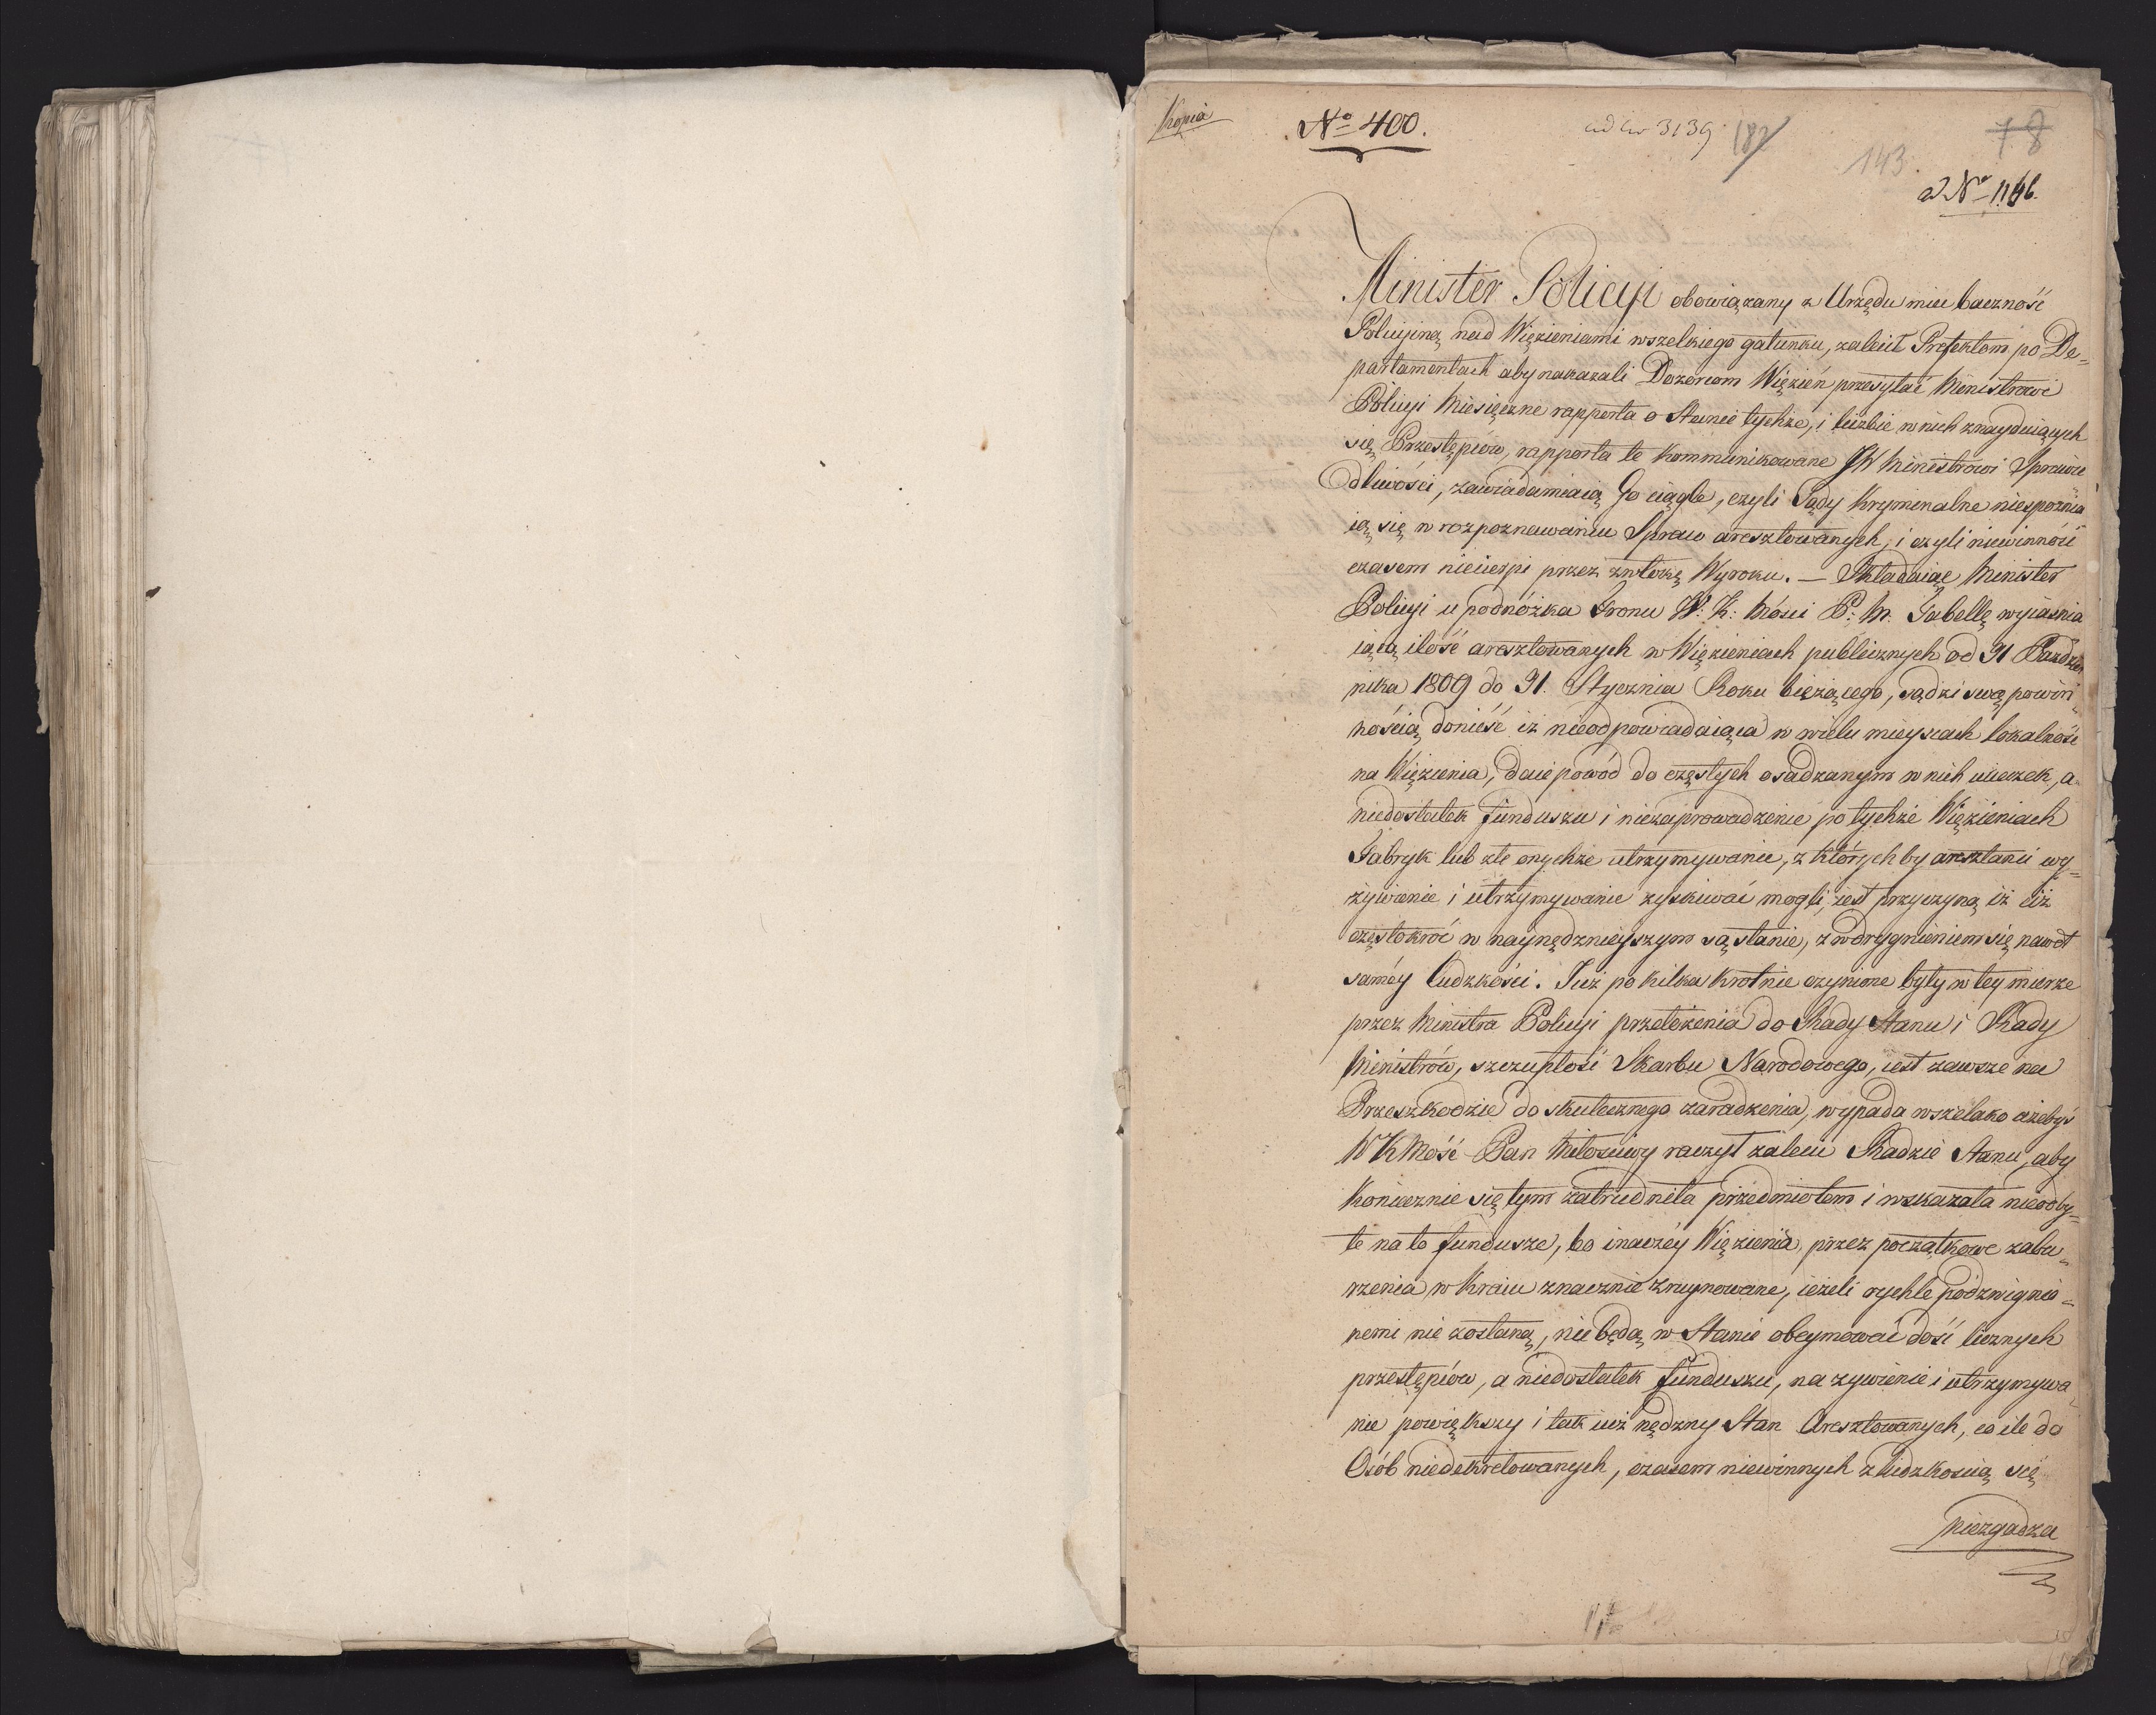 Kopia
No 400.
ad No 3139
182
143.
7 8
ad No 1146.
Minister Policyi obowiązany z Urzędu mieć baczność
Policyiną nad Więzieniami wszelkiego gatunku, zalecił Prefektom po De=
partamentach aby nakazali Dozorcom Więzień przesyłać Ministrowi
Policyi Miesięczne rapporta o Stanie tychże, i liczbie w nich znayduiących
się Przestępców, rapporta te kommunikowane JW Ministrowi Sprawie
dliwości, zawiadamiaią Go ciągle, czyli Sądy Kryminalne niespóźnia
ią się w rozpoznawaniu Spraw aresztowanych, i czyli niewinność
czasem niecierpi przez zwłokę Wyroku. — Składaiąc Minister
Policyi u podnóżka Tronu W: K: Mości P: M: Tabellę wyiaśnia
iącą ilość aresztowanych w Więzieniach publicznych od 31 Paździer
nika 1809 do 31. Stycznia Roku bieżącego, sądzi swą powin
nością donieść iż nieodpowiadaiąca w wielu mieyscach lokalność
na Więzienia, daie powód do częstych osadzanym w nich ucieczek, a
niedostatek funduszu i niezaprowadzenie po tychże Więzieniach
Fabryk lub złe onychże utrzymywanie, z którychby aresztanci wy=
żywienie i utrzymywanie zyskiwać mogli, iest przyczyną iż ciż
częstokroć w naynędznieyszym są stanie, z wzdrygnieniem się nawet
saméy ludzkości. Już po kilka krotnie czynione były w tey mierze
przez Ministra Policyi przełożenia do Rady Stanu i Rady
Ministrów, szczupłość Skarbu Narodowego, iest zawsze na
Przeszkodzie do skutecznego zaradzenia, wypada wszelako ażebyś
W K Mość Pan Miłościwy raczył zalecić Radzie Stanu, aby
koniecznie się tym zatrudniła przedmiotem i wskazała nieodby=
te na to fundusze, bo inaczéy Więzienia, przez początkowe zabu
rzenia w Kraiu znacznie zruynowane, ieżeli rychle podźwignio=
nemi nie zostaną, nie będą w Stanie obeymować dość licznych
przestępców, a niedostatek funduszu, na żywienie i utrzymywa
nie powiększy i tak iuż nędzny Stan Aresztowanych, co ile do
Osób niedekretowanych, czasem niewinnych z ludzkością się
niezgadza